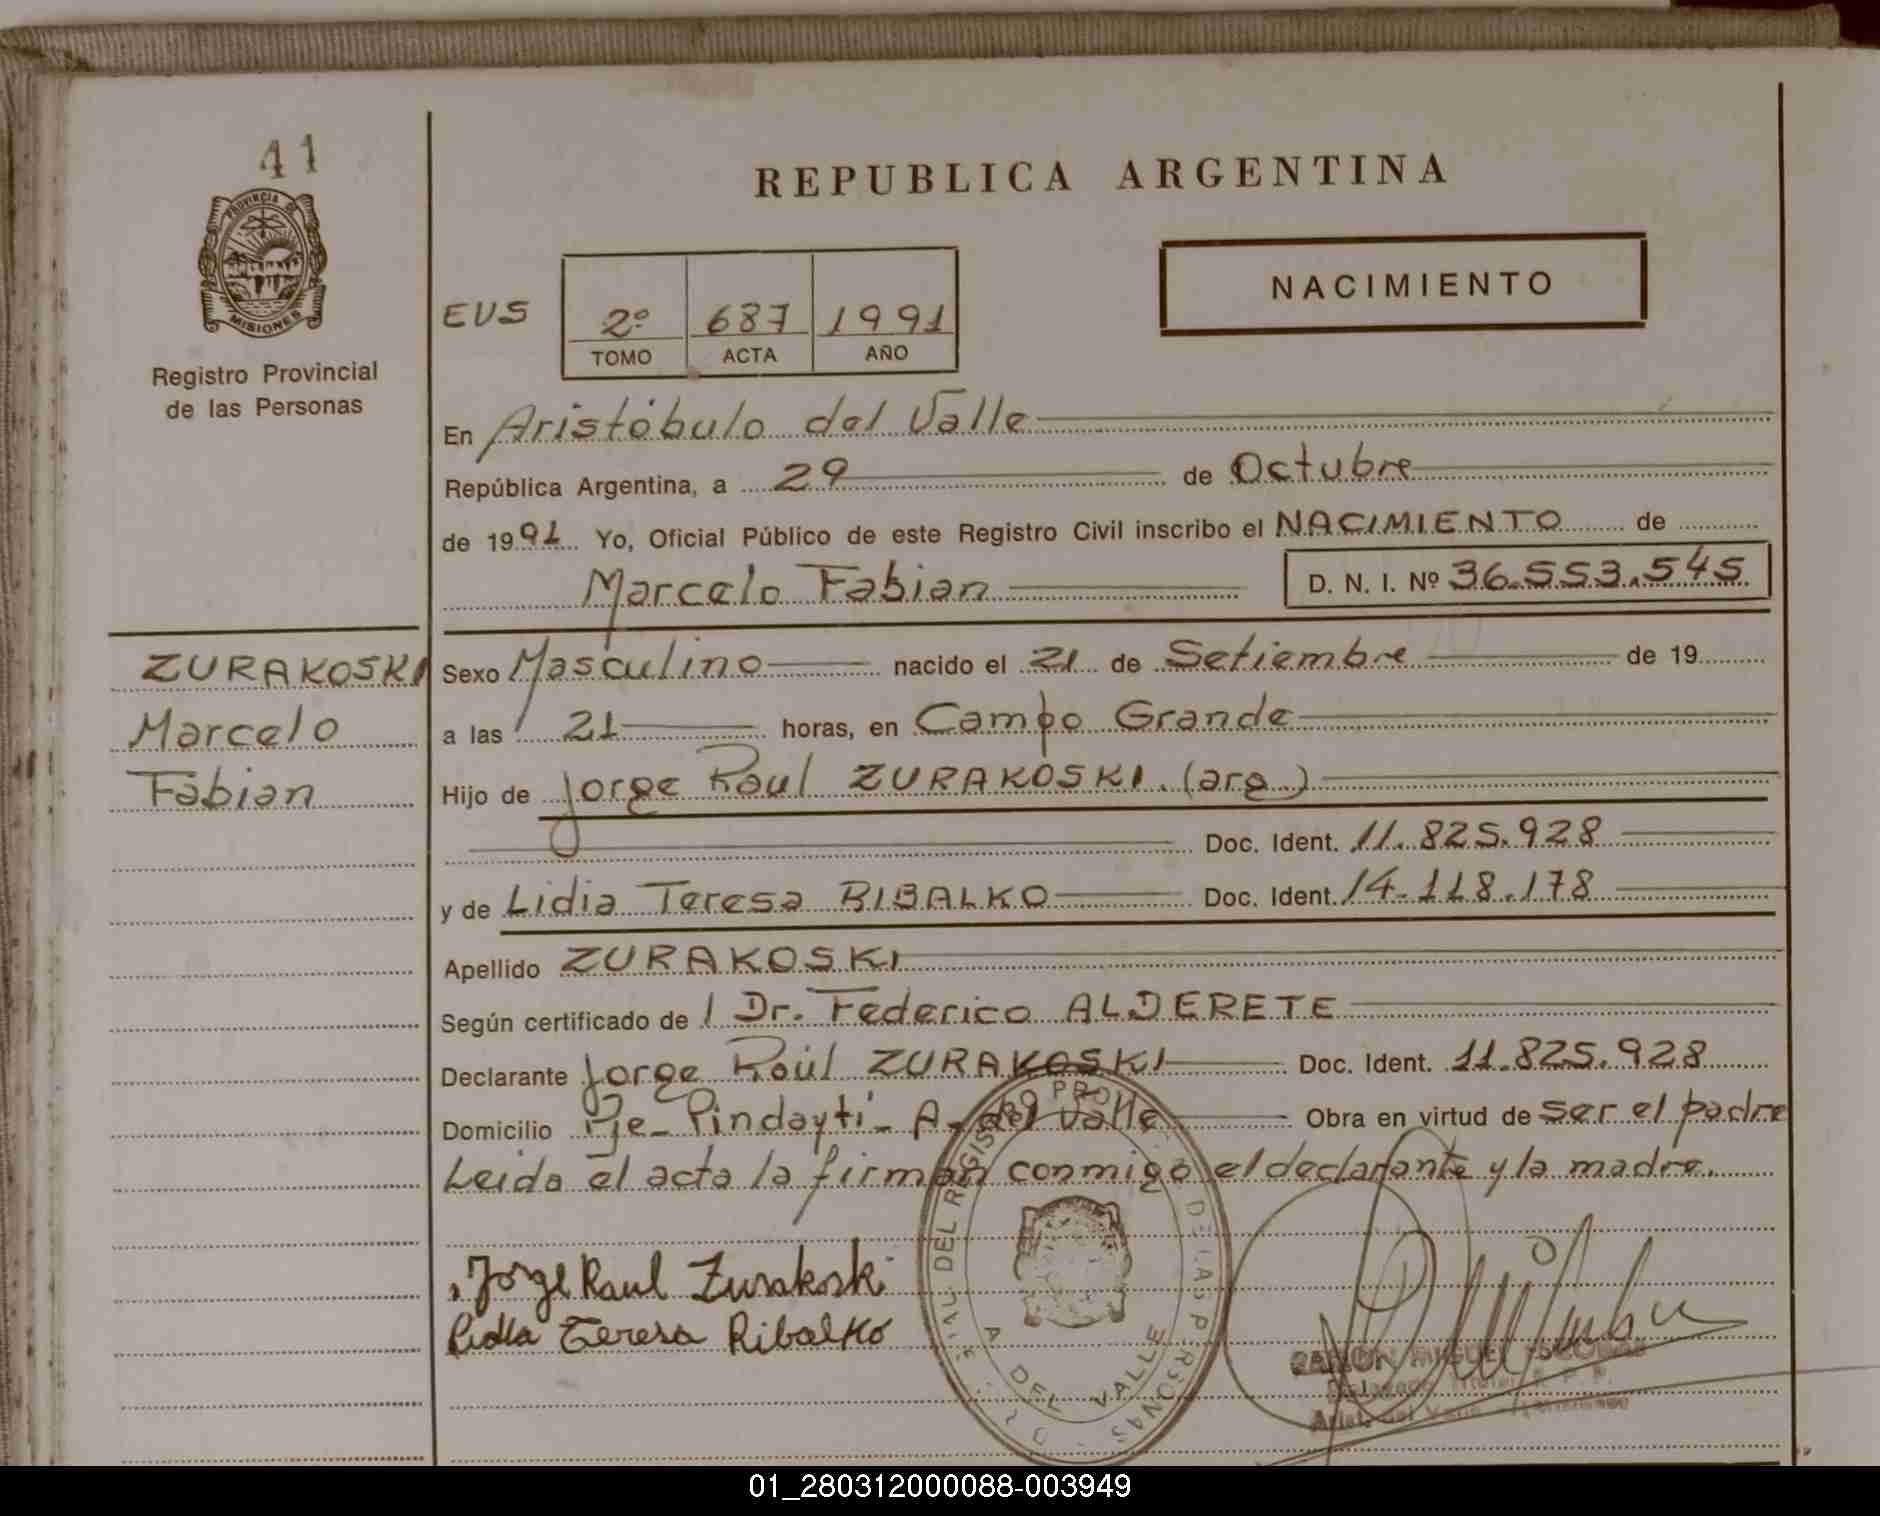 41
PROVINCIA DE
MISIONES
Registro Provincial
de las Personas
REPUBLICA ARGENTINA
NACIMIENTO
EUS
2º 687 1991
TOMO ACTA AÑO
En Aristóbulo del Valle
República Argentina, a 29 de Octubre
de 1991 Yo, Oficial Público de este Registro Civil inscribo el NACIMIENTO de
Marcelo Fabian D. N. I. Nº 36.553.545
ZURAKOSKI
Marcelo
Fabian
Sexo Masculino nacido el 21 de Setiembre de 19
a las 21 horas, en Campo Grande
Hijo de Jorge Raul ZURAKOSKI. (arg)
Doc. Ident. 11.825.928
y de Lidia Teresa RIBALKO Doc. Ident. 14.118.178
Apellido ZURAKOSKI
Según certificado de Dr. Federico ALDERETE
Declarante Jorge Raúl ZURAKOSKI Doc. Ident. 11.825.928
Domicilio Pje_ Pindaytí_ A. del Valle Obra en virtud de ser el padre
Leida el acta la firman conmigo el declarante y la madre.
Jorge Raul Zurakoski
Lidia Teresa Ribalko
DEL REGISTRO PRO
DE LAS PERSONAS
A DEL VALLE
MIGUEL ESCOBAR
01_280312000088-003949